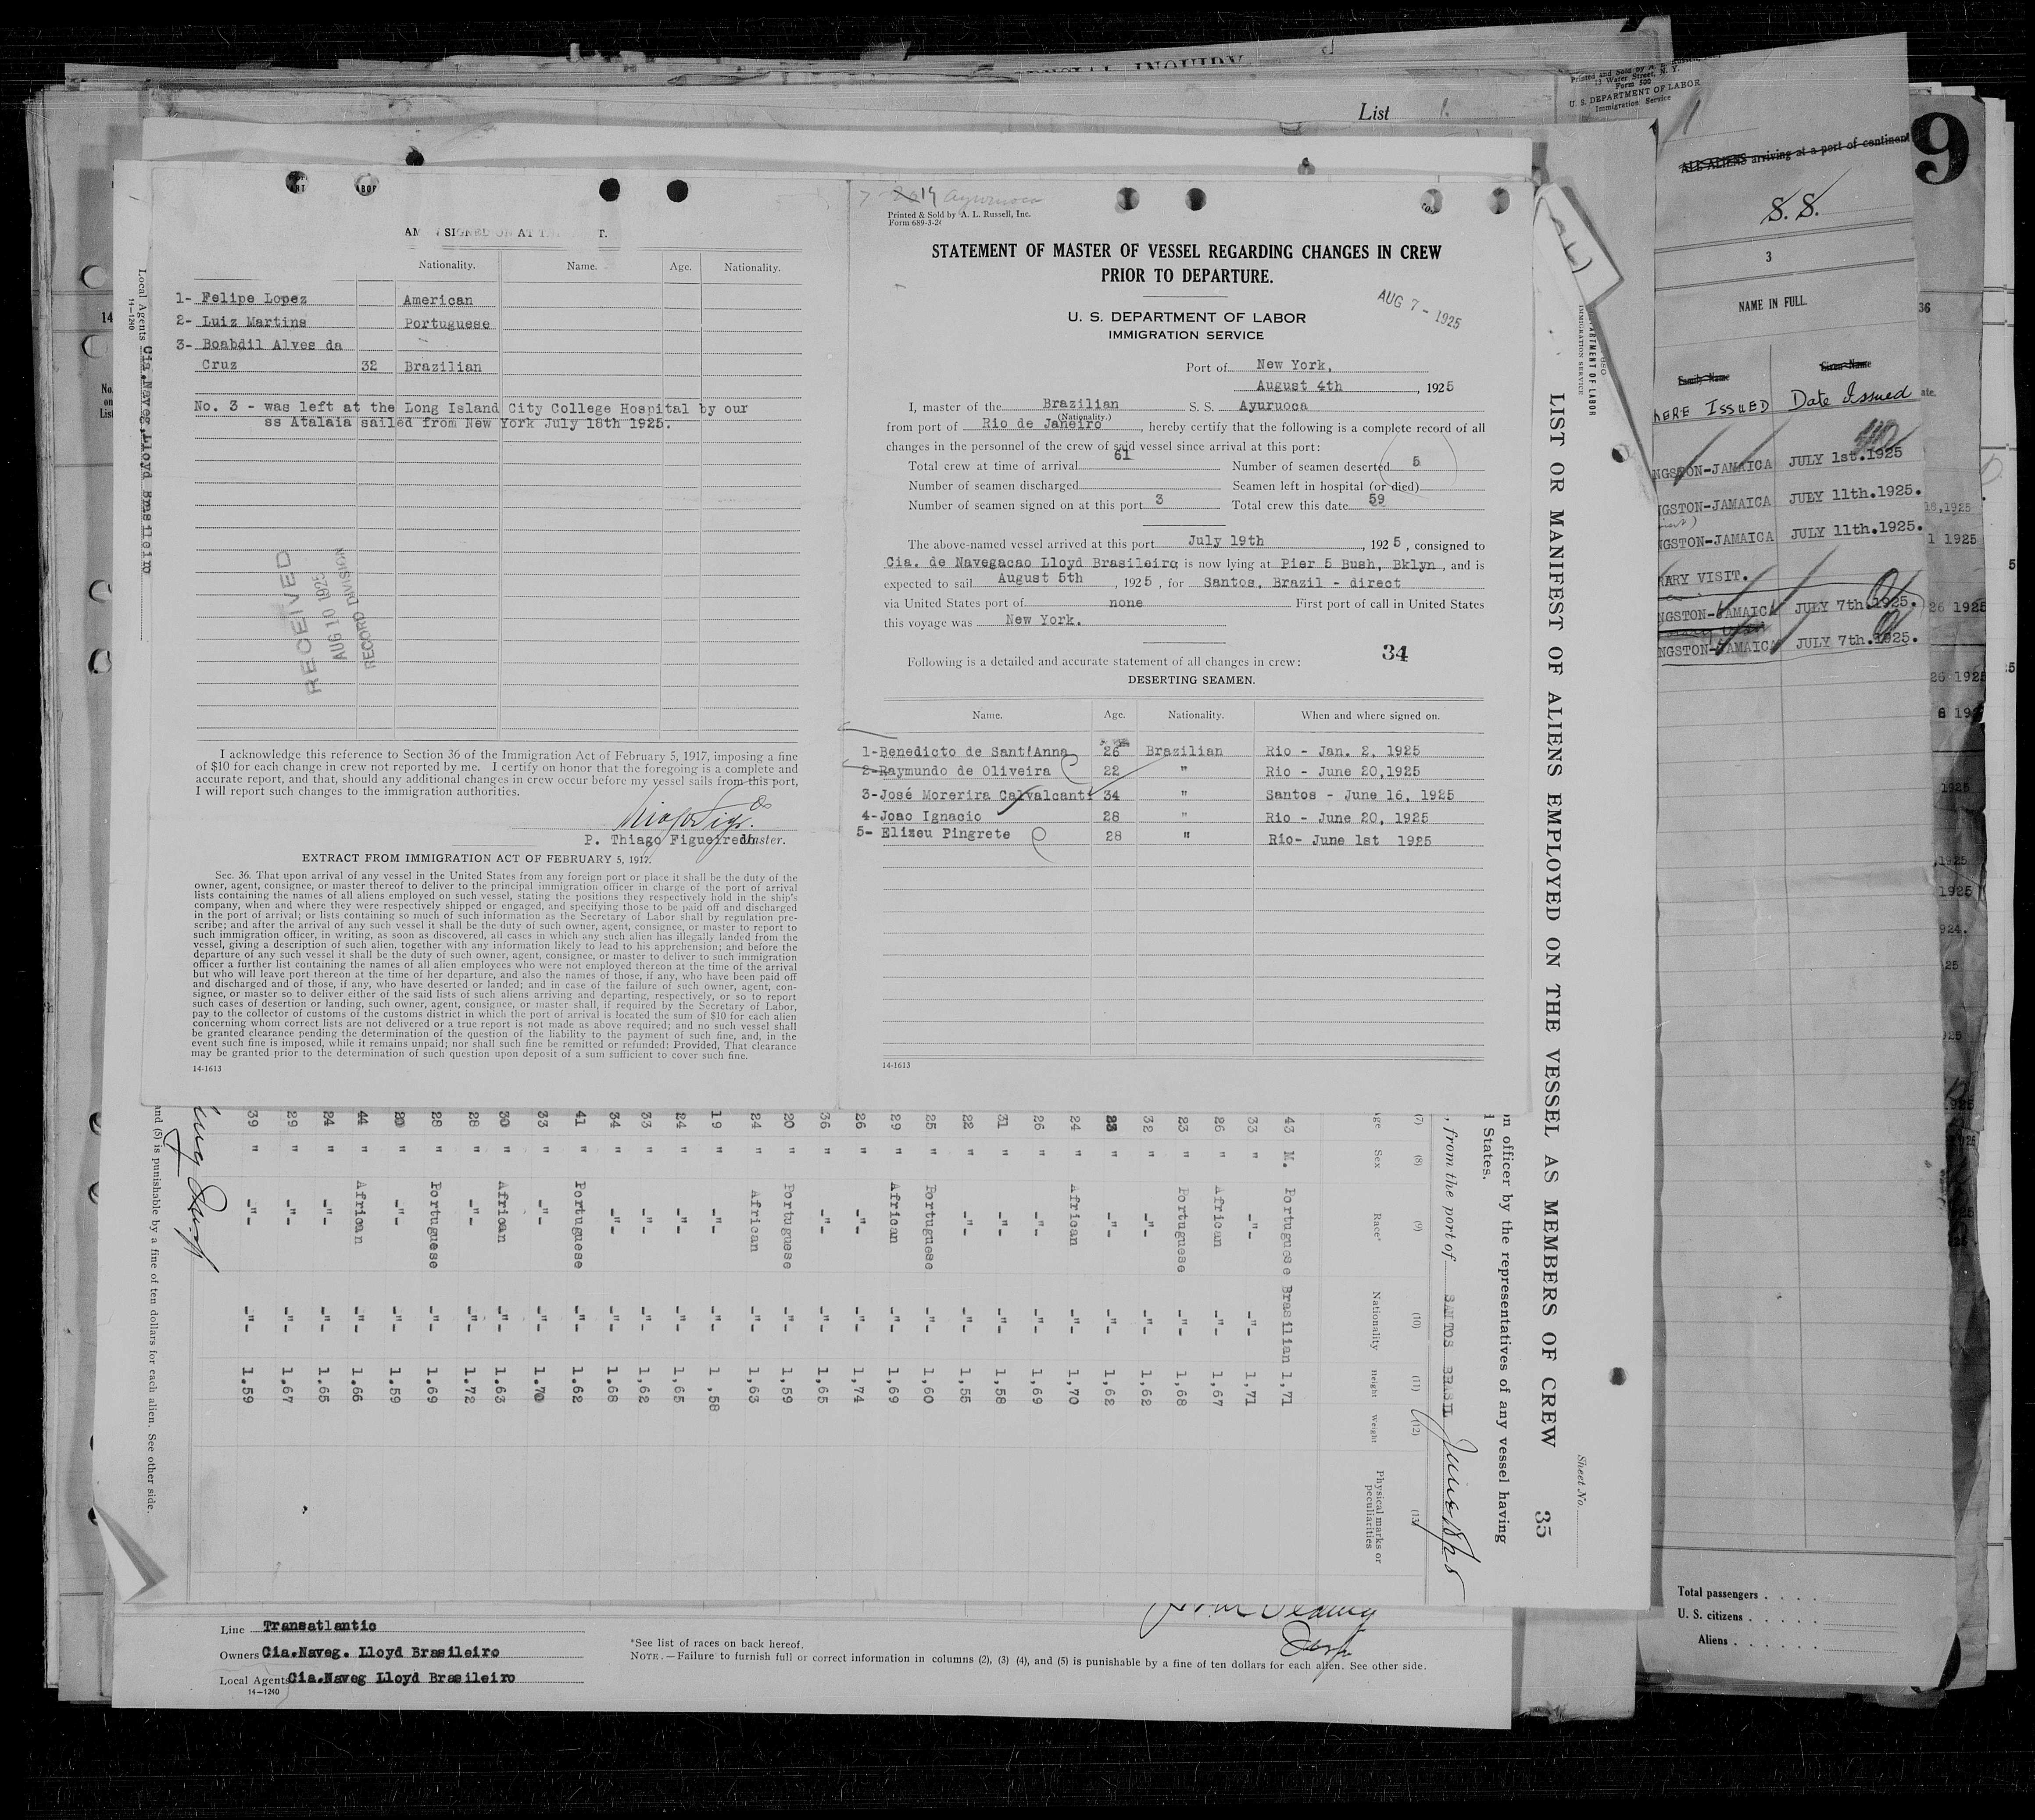 List
Printed and Sold by A.
Water Street, N. Y.
Form 500
U. S. DEPARTMENT OF LABOR
Immigration Service
9
ALL ALIENS arriving at a port of continent
S. S.
3
NAME IN FULL.
Family Name
Given Name
HERE ISSUED Date Issued
NGSTON-JAMAICA JULY 1st.1925
NGSTON-JAMAICA JULY 11th.1925.
NGSTON-JAMAICA JULY 11th.1925.
RARY VISIT.
NGSTON-JAMAICA JULY 7th.1925.
NGSTON-JAMAICA JULY 7th.1925.
Total passengers . . . .
U. S. citizens . . . . .
Aliens . . . . . .
Nationality. Name. Age. Nationality.
1- Felipe Lopez American
2- Luiz Martins Portuguese
3- Boabdil Alves da
Cruz 32 Brazilian
No. 3 - was left at the Long Island City College Hospital by our
ss Atalaia sailed from New York July 18th 1925.
RECEIVED
AUG 10 1925
RECORD DIVISION
I acknowledge this reference to Section 36 of the Immigration Act of February 5, 1917, imposing a fine
of $10 for each change in crew not reported by me. I certify on honor that the foregoing is a complete and
accurate report, and that, should any additional changes in crew occur before my vessel sails from this port,
I will report such changes to the immigration authorities.
P. Thiago Figueiredo Master.
EXTRACT FROM IMMIGRATION ACT OF FEBRUARY 5, 1917.
Sec. 36. That upon arrival of any vessel in the United States from any foreign port or place it shall be the duty of the
owner, agent, consignee, or master thereof to deliver to the principal immigration officer in charge of the port of arrival
lists containing the names of all aliens employed on such vessel, stating the positions they respectively hold in the ship's
company, when and where they were respectively shipped or engaged, and specifying those to be paid off and discharged
in the port of arrival; or lists containing so much of such information as the Secretary of Labor shall by regulation pre-
scribe; and after the arrival of any such vessel it shall be the duty of such owner, agent, consignee, or master to report to
such immigration officer, in writing, as soon as discovered, all cases in which any such alien has illegally landed from the
vessel, giving a description of such alien, together with any information likely to lead to his apprehension; and before the
departure of any such vessel it shall be the duty of such owner, agent, consignee, or master to deliver to such immigration
officer a further list containing the names of all alien employees who were not employed thereon at the time of the arrival
but who will leave port thereon at the time of her departure, and also the names of those, if any, who have been paid off
and discharged and of those, if any, who have deserted or landed; and in case of the failure of such owner, agent, con-
signee, or master so to deliver either of the said lists of such aliens arriving and departing, respectively, or so to report
such cases of desertion or landing, such owner, agent, consignee, or master shall, if required by the Secretary of Labor,
pay to the collector of customs of the customs district in which the port of arrival is located the sum of $10 for each alien
concerning whom correct lists are not delivered or a true report is not made as above required; and no such vessel shall
be granted clearance pending the determination of the question of the liability to the payment of such fine, and, in the
event such fine is imposed, while it remains unpaid; nor shall such fine be remitted or refunded: Provided, That clearance
may be granted prior to the determination of such question upon deposit of a sum sufficient to cover such fine.
14-1613
Ayuruoca
Printed & Sold by A. L. Russell, Inc.
Form 689-3-24
STATEMENT OF MASTER OF VESSEL REGARDING CHANGES IN CREW
PRIOR TO DEPARTURE.
AUG 7 - 1925
U. S. DEPARTMENT OF LABOR
IMMIGRATION SERVICE
Port of New York,
August 4th, 1925
I, master of the Brazilian S. S. Ayuruoca
(Nationality.)
from port of Rio de Janeiro, hereby certify that the following is a complete record of all
changes in the personnel of the crew of said vessel since arrival at this port:
Total crew at time of arrival 61 Number of seamen deserted 5
Number of seamen discharged Seamen left in hospital (or died)
Number of seamen signed on at this port 3 Total crew this date 59
The above-named vessel arrived at this port July 19th, 1925, consigned to
Cia. de Navegacao Lloyd Brasileiro is now lying at Pier 5 Bush, Bklyn, and is
expected to sail August 5th, 1925, for Santos, Brazil - direct
via United States port of none First port of call in United States
this voyage was New York.
34
Following is a detailed and accurate statement of all changes in crew:
DESERTING SEAMEN.
Name. Age. Nationality. When and where signed on.
1-Benedicto de Sant'Anna 26 Brazilian Rio - Jan. 2, 1925
2-Raymundo de Oliveira 22 " Rio - June 20,1925
3-José Morerira Calvalcanti 34 " Santos - June 16, 1925
4-Joao Ignacio 28 " Rio - June 20, 1925
5- Elizeu Pingrete 28 " Rio- June 1st 1925
14-1613
Local Agents Cia.Naveg.Lloyd Brasileiro
14-1240
LIST OR MANIFEST OF ALIENS EMPLOYED ON THE VESSEL AS MEMBERS OF CREW
35
Sheet No.
ARTMENT OF LABOR
IMMIGRATION SERVICE
n officer by the representatives of any vessel having
States.
, from the port of SANTOS BRASIL June 18/25
(7) (8) (9) (10) (11) (12) (13)
Age Sex Race* Nationality Height Weight Physical marks or peculiarities
43 M. Portuguese Brasilian 1,71
33 " -"- -"- 1,71
26 " African -"- 1,67
23 " Portuguese -"- 1,68
32 " -"- -"- 1,62
23 " -"- -"- 1,62
24 " African -"- 1,70
26 " -"- -"- 1,69
31 " -"- -"- 1,58
22 " -"- -"- 1,55
25 " Portuguese -"- 1,60
29 " African -"- 1,69
26 " -"- -"- 1,74
36 " -"- -"- 1,65
20 " Portuguese -"- 1,59
24 " African -"- 1,63
19 " -"- -"- 1,58
24 " -"- -"- 1,65
33 " -"- -"- 1,62
34 " -"- -"- 1.68
41 " Portuguese -"- 1.62
33 " -"- -"- 1.70
30 " African -"- 1.63
28 " -"- -"- 1.72
28 " Portuguese -"- 1.69
20 " -"- -"- 1.59
44 " African -"- 1.66
24 " -"- -"- 1.65
29 " -"- -"- 1,67
39 " -"- -"- 1.59
and (5) is punishable by a fine of ten dollars for each alien. See other side.
Line Transatlantic
Owners Cia.Naveg. Lloyd Brasileiro
Local Agents Cia.Naveg Lloyd Brasileiro
14-1240
*See list of races on back hereof.
NOTE.—Failure to furnish full or correct information in columns (2), (3) (4), and (5) is punishable by a fine of ten dollars for each alien. See other side.